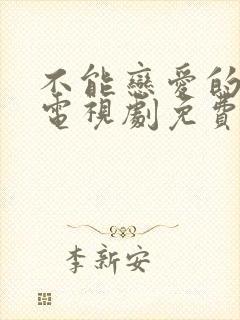 不能戀愛的
電視劇免費
李新安